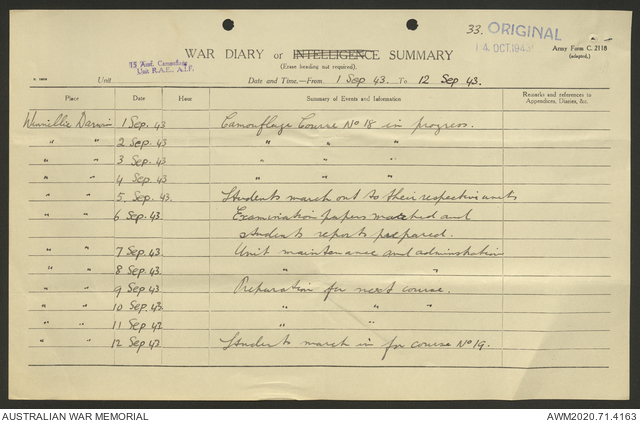 33. ORIGINAL
14 OCT 1943
WAR DIARY or INTELLIGENCE SUMMARY
Army Form C. 2118
(adapted.)
(Erase heading not required).
15 Aust. Camouflage
Unit R.A.E., A.I.F.
Unit
Date and Time—From 1 Sep 43. To 12 Sep 43.
Place Date Hour Summary of Events and Information Remarks and references to
Appendices, Diaries, &c.
Winnellie Darwin 1 Sep. 43 Camouflage Course No 18 in progress.
" " 2 Sep. 43 " " "
" " 3 Sep. 43 " " "
" " 4 Sep. 43 " " "
" " 5. Sep. 43. Students march out to their respective units
" " 6 Sep. 43 Examination papers marked and
students reports prepared.
" " 7 Sep. 43 Unit maintenance and adminstration
" " 8 Sep. 43 " "
" " 9 Sep 43 Preparation for next course.
" " 10 Sep 43 " " "
" " 11 Sep 43 " "
" " 12 Sep 43 Students march in for course No 19.
AUSTRALIAN WAR MEMORIAL
AWM2020.71.4163